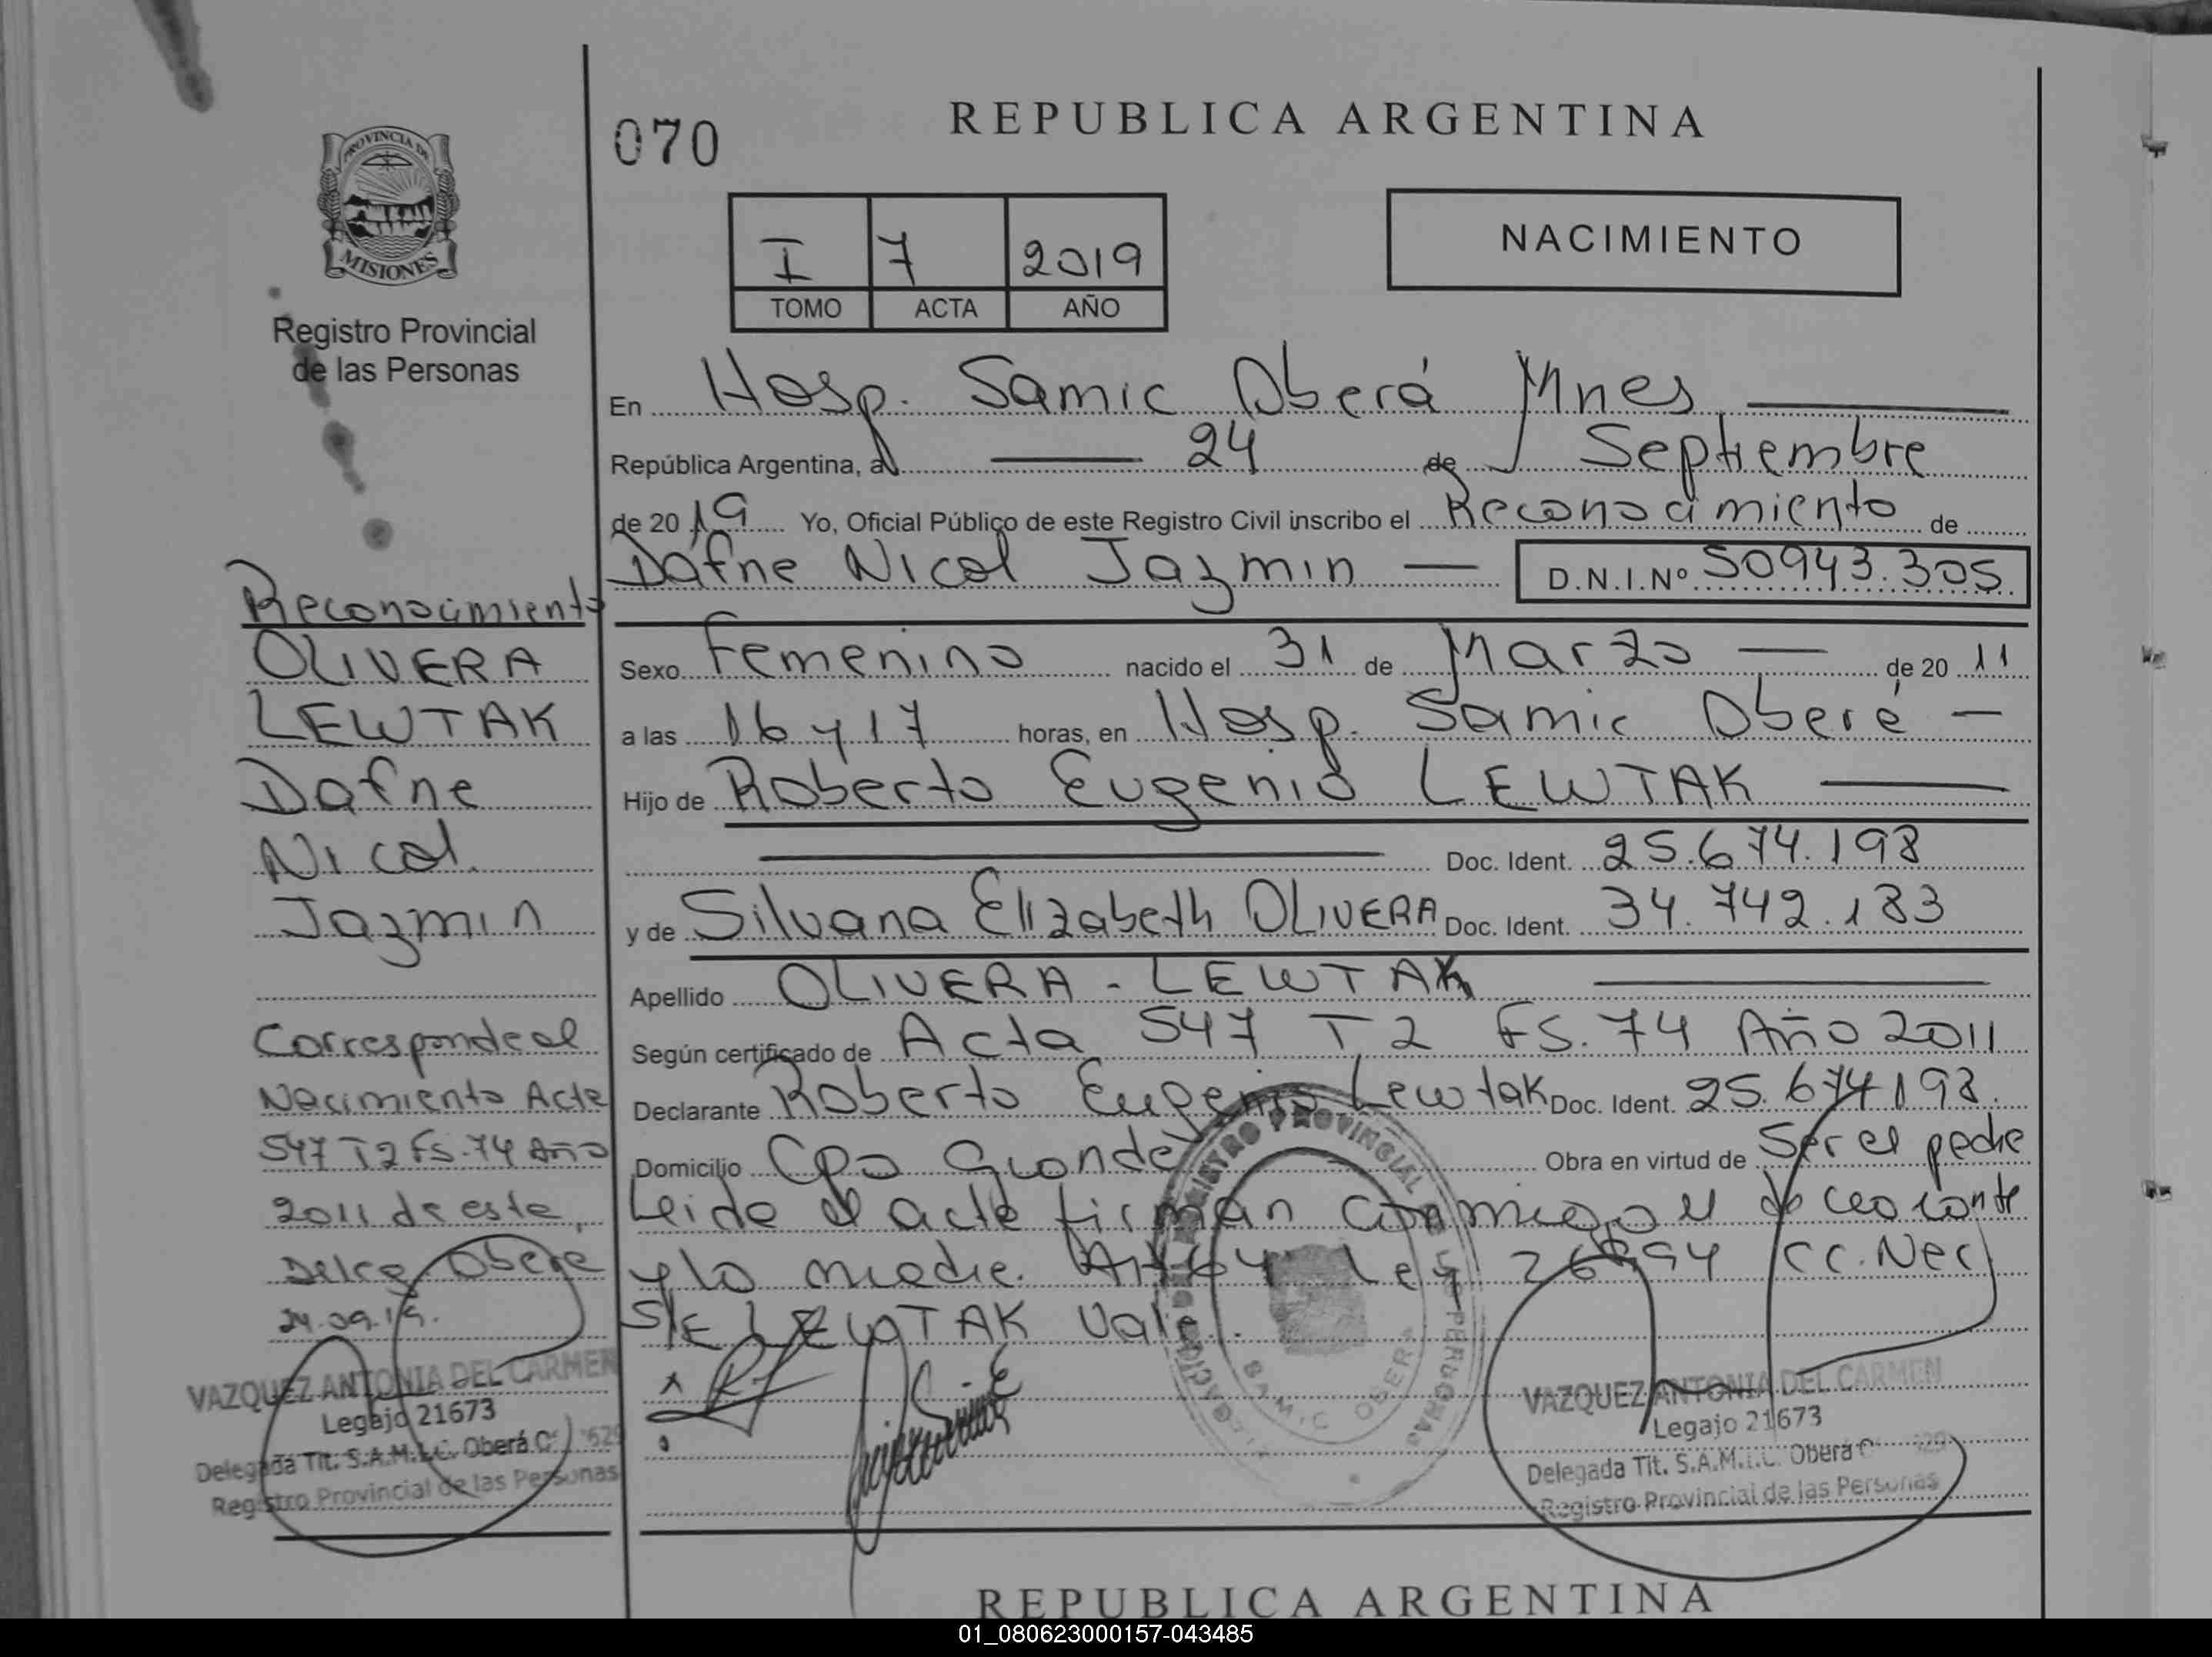 PROVINCIA DE
MISIONES
Registro Provincial
de las Personas
Reconocimiento
OLIVERA
LEWTAK
Dafne
Nicol
Jazmin
Corresponde al
Nacimiento Acta
547 T2 Fs. 74 Año
2011 de esta
Deleg Oberá
24.09.19.
VAZQUEZ ANTONIA DEL CARMEN
Legajo 21673
Delegada Tit. S.A.M.I.C. Oberá
Registro Provincial de las Personas
070
REPUBLICA ARGENTINA
I 7 2019
TOMO ACTA AÑO
NACIMIENTO
En Hosp. Samic Oberá Mnes
República Argentina, a 24 de Septiembre
de 2019 Yo, Oficial Público de este Registro Civil inscribo el Reconocimiento de
Dafne Nicol Jazmin D.N.I.Nº 50943.305
Sexo Femenino nacido el 31 de Marzo de 2011
a las 16 y 17 horas, en Hosp. Samic Oberá
Hijo de Roberto Eugenio LEWTAK
Doc. Ident. 25.674.198
y de Silvana Elizabeth OLIVERA Doc. Ident. 34.742.183
Apellido OLIVERA - LEWTAK
Según certificado de Acta 547 T2 FS. 74 Año 2011
Declarante Roberto Eugenio Lewtak Doc. Ident. 25.674198.
Domicilio Cpo Grande Obra en virtud de Ser el padre
Leida el acta firman conmigo el declarante
y la madre. Art 64 Ley 26994 CC. Nec
S/E LEWTAK Vale.
REGISTRO PROVINCIAL DE LAS PERSONAS
SAMIC OBERA
VAZQUEZ ANTONIA DEL CARMEN
Legajo 21673
Delegada Tit. S.A.M.I.C. Oberá
Registro Provincial de las Personas
REPUBLICA ARGENTINA
01_080623000157-043485